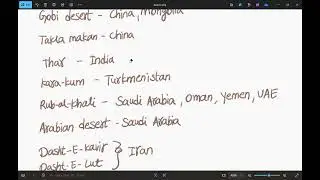 Gobi desert - China, Mongolia
Takla makan - China
Thar - India
Kara-kum - Turkmenistan
Rub-al-khali - Saudi Arabia, Oman, Yemen, UAE
Arabian desert - Saudi Arabia
Dasht-E-kavir } Iran
Dasht-E-Lut